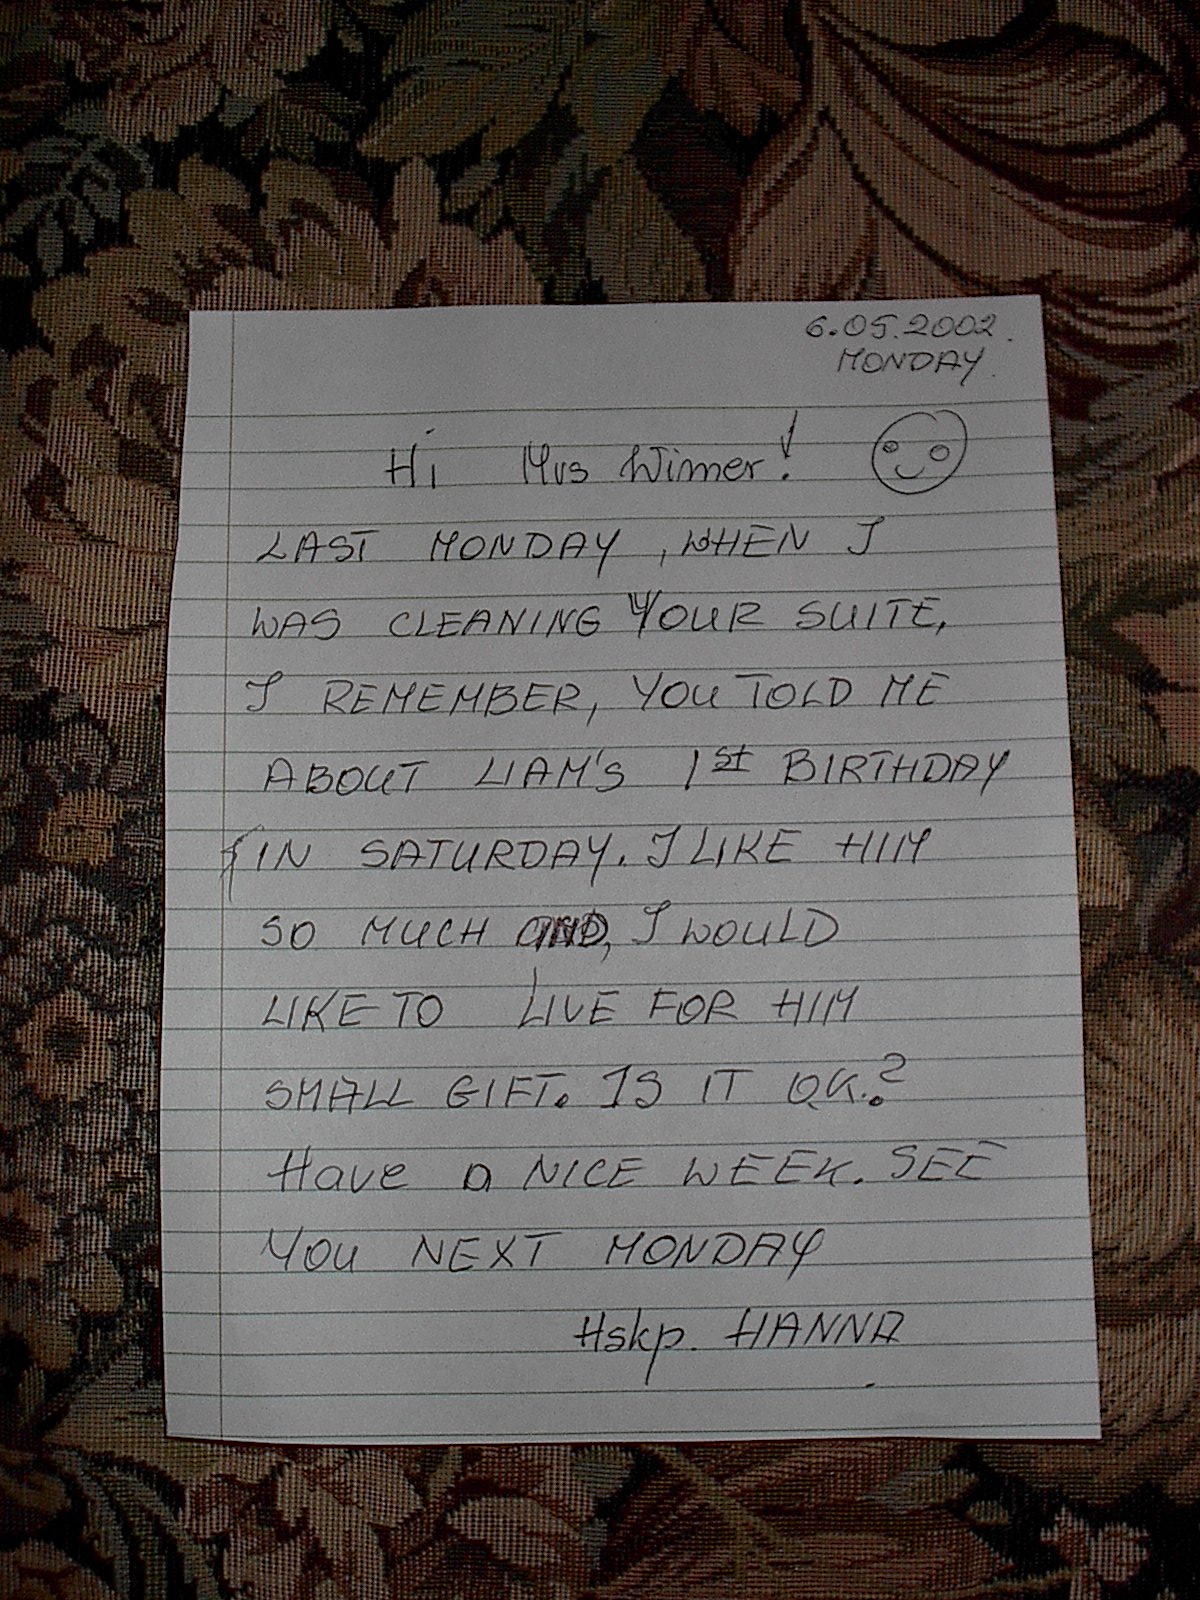 6.05.2002.
MONDAY.
Hi Mrs Wimer!
LAST MONDAY, WHEN I
WAS CLEANING YOUR SUITE,
I REMEMBER, YOU TOLD ME
ABOUT LIAM'S 1st BIRTHDAY
IN SATURDAY. I LIKE HIM
SO MUCH AND, I WOULD
LIKE TO LIVE FOR HIM
SMALL GIFT. IS IT O.K.?
Have a NICE WEEK. SEE
YOU NEXT MONDAY
Hskp. HANNA